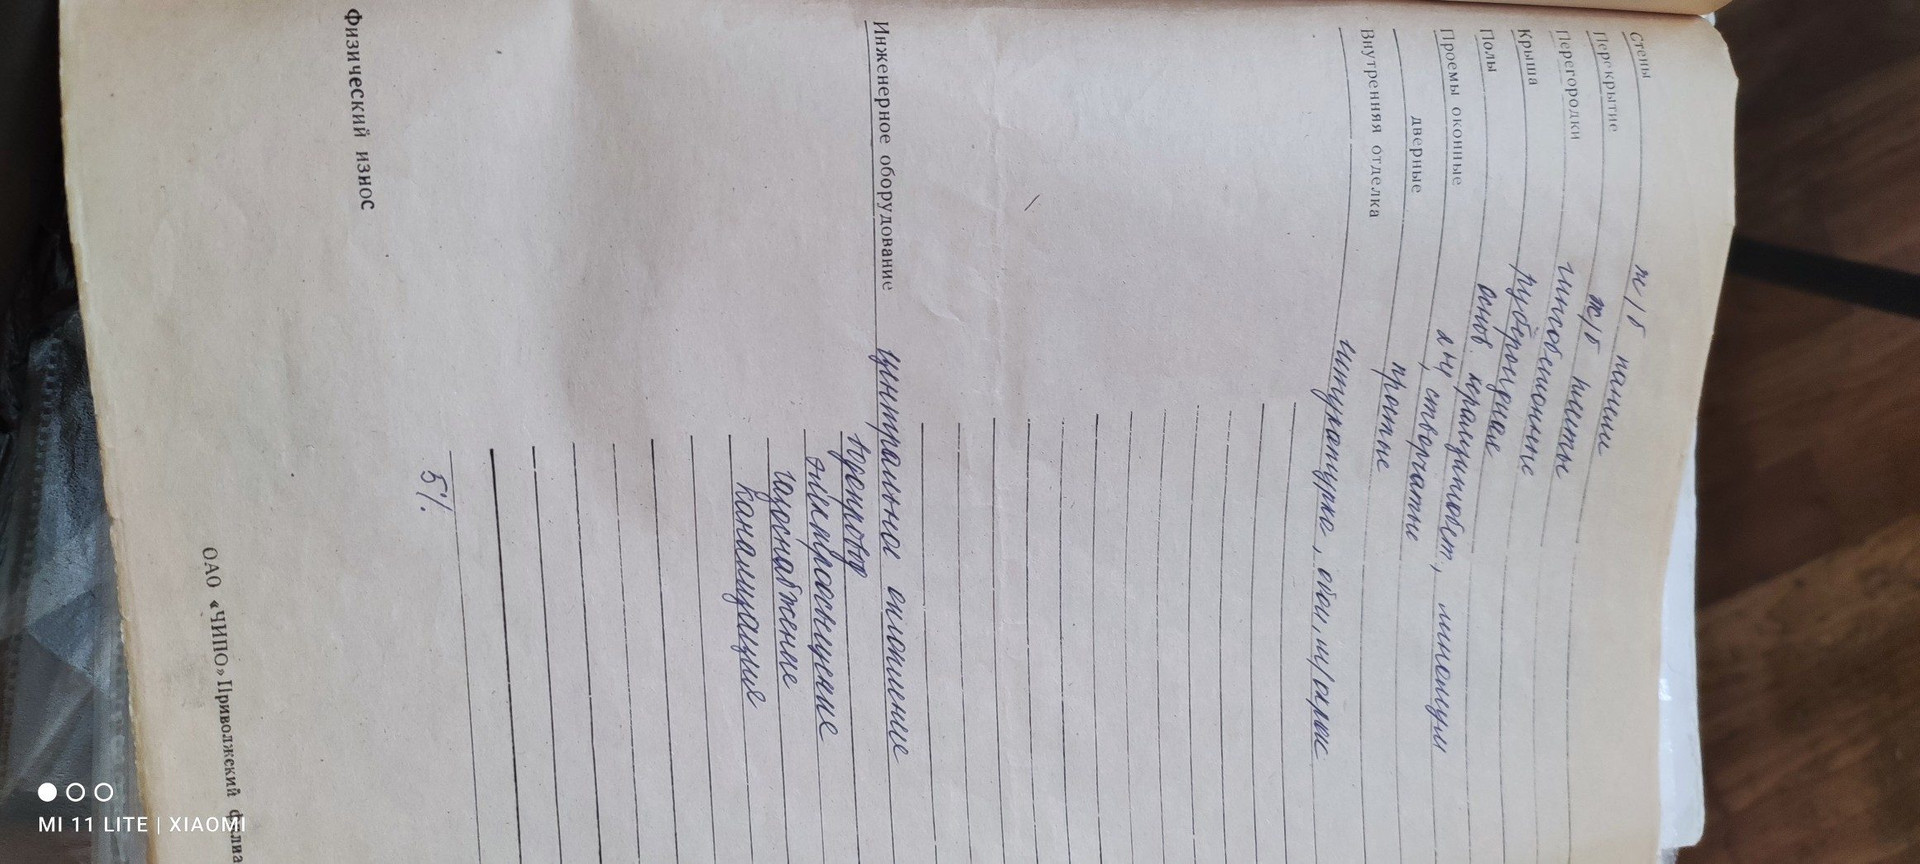 Стены ж/б панели
Перекрытие ж/б плиты
Перегородки гипсобетонные
Крыша рубероидная
Полы основ. керамзитобет., линолеум
Проемы оконные 2-ые, створчатые
дверные простые
Внутренняя отделка штукатурка, обои, м/окрас
Инженерное оборудование центральное отопление
водопровод
электроосвещение
газоснабжение
канализация
физический износ 5%.
ОАО «ЧИПО» Приволжский филиа
MI 11 LITE | XIAOMI